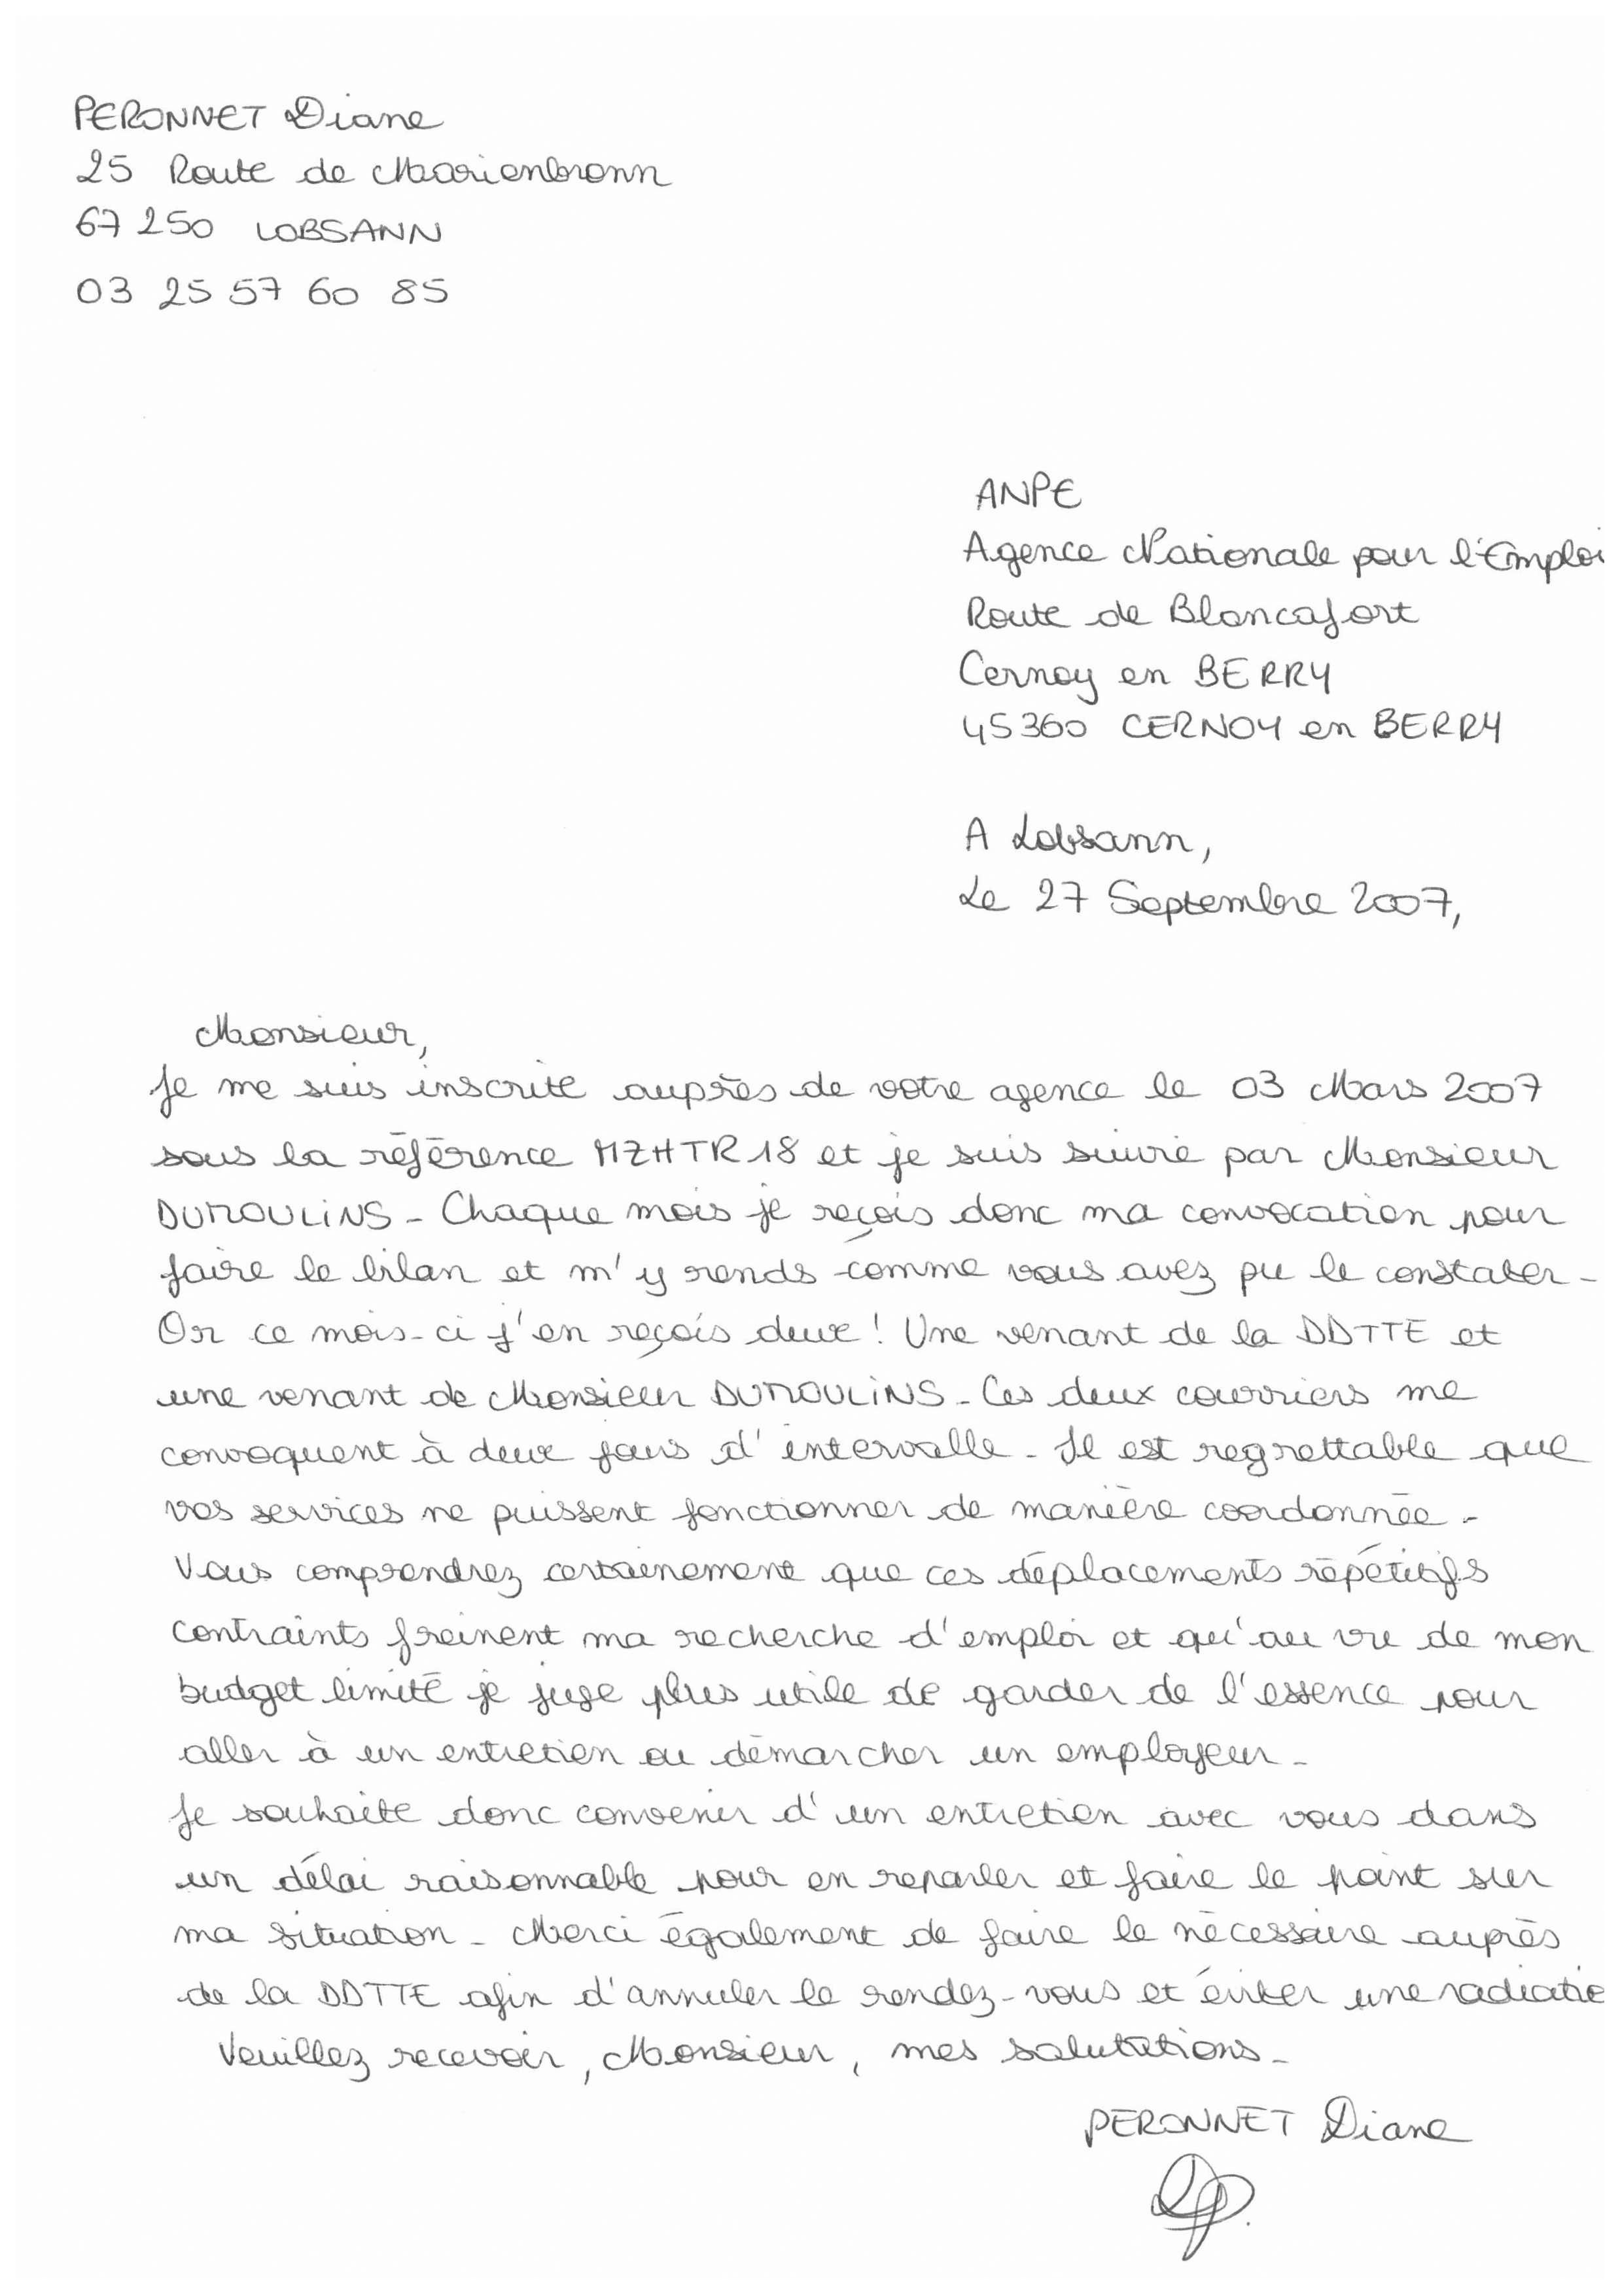 PERONNET Diane
25 Route de Marienbronn
67 250 LOBSANN
03 25 57 60 85
ANPE
Agence Nationale pour l'Emploi
Route de Blancafort
Cernoy en BERRY
45360 CERNOY en BERRY
A Lobsann,
Le 27 Septembre 2007,
Monsieur,
Je me suis inscrite auprès de votre agence le 03 Mars 2007
sous la référence MZHTR18 et je suis suivie par Monsieur
DUMOULINS - Chaque mois je reçois donc ma convocation pour
faire le bilan et m'y rends comme vous avez pu le constater -
Or ce mois-ci j'en reçois deux ! Une venant de la DDTTE et
une venant de Monsieur DUMOULINS - Ces deux courriers me
convoquent à deux jours d'intervalle - Il est regrettable que
vos services ne puissent fonctionner de manière coordonnée -
Vous comprendrez certainement que ces déplacements répétitifs
contraints freinent ma recherche d'emploi et qu'au vu de mon
budget limité je juge plus utile de garder de l'essence pour
aller à un entretien ou démarcher un employeur -
Je souhaite donc convenir d'un entretien avec vous dans
un délai raisonnable pour en reparler et faire le point sur
ma situation - Merci également de faire le nécessaire auprès
de la DDTTE afin d'annuler le rendez-vous et éviter une radiatio
Veuillez recevoir, Monsieur, mes salutations -
PERONNET Diane
DP.